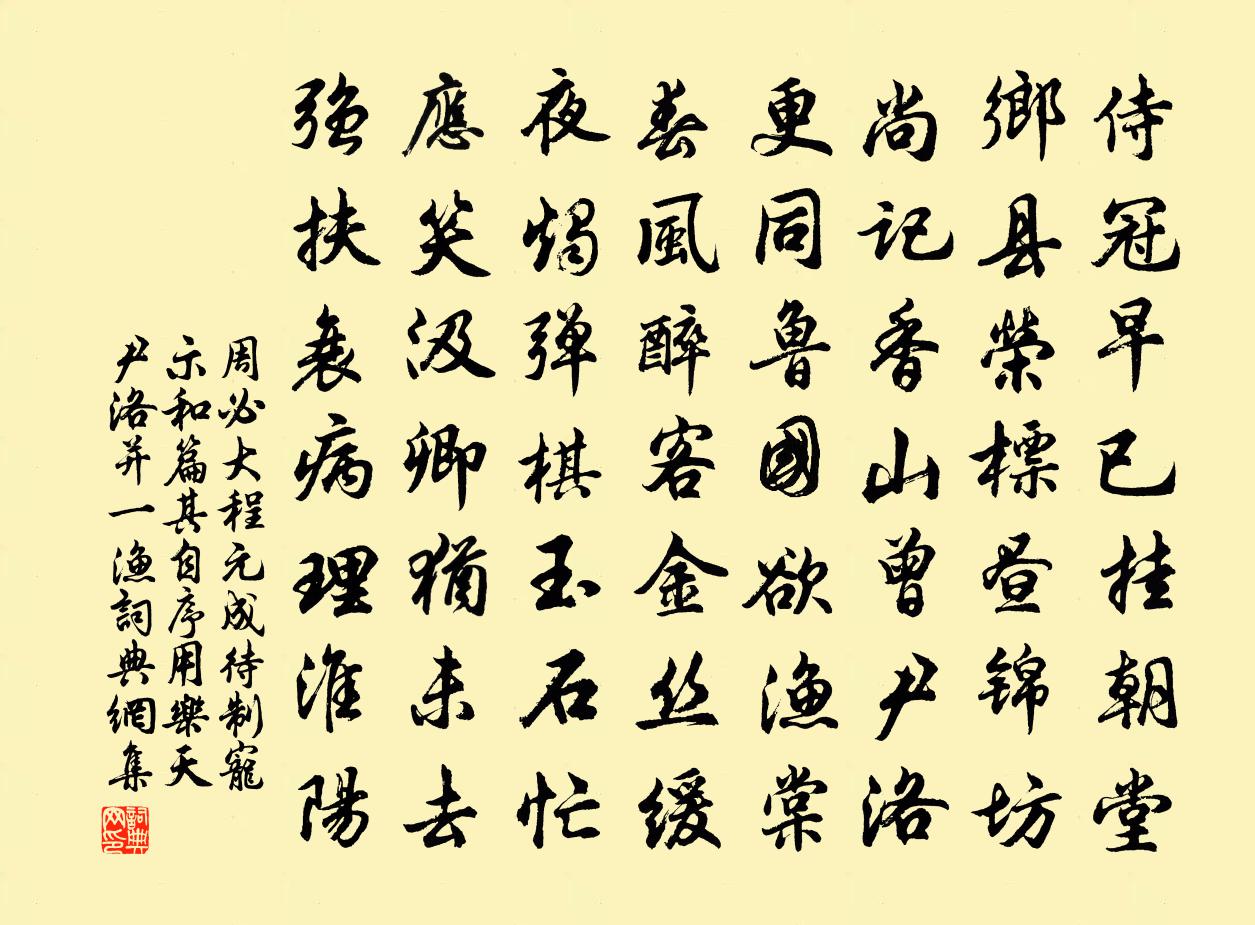 侍冠早已挂朝堂
鄉县榮標昼錦坊
尚记香山曾尹洛
更同魯國欲渔棠
春風醉客金丝缓
夜燭弹棋玉石忙
應笑汲卿猶未去
強扶衰病理淮陽
周必大程元成待制寵
示和篇其自序用樂天
尹洛并一渔詞典網集
詞典网印